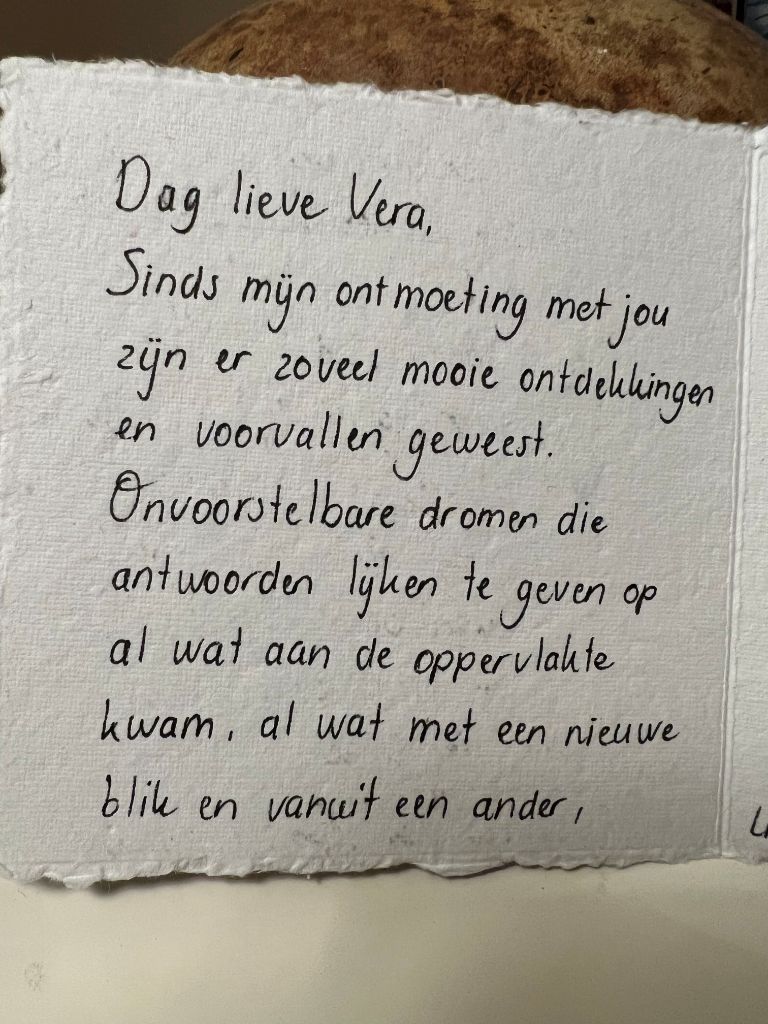 Dag lieve Vera,
Sinds mijn ontmoeting met jou
zijn er zoveel mooie ontdekkingen
en voorvallen geweest.
Onvoorstelbare dromen die
antwoorden lijken te geven op
al wat aan de oppervlakte
kwam, al wat met een nieuwe
blik en vanuit een ander,